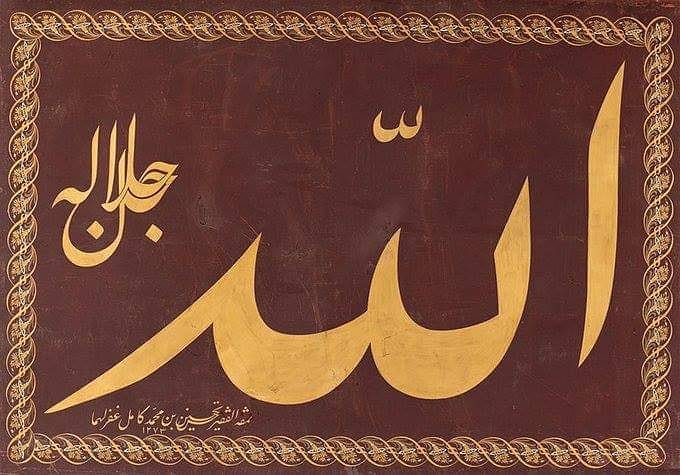 اللّه
جل جلاله
نمقه الفقير تحسين بن محمد كامل غفر لهما
١٢٧٣